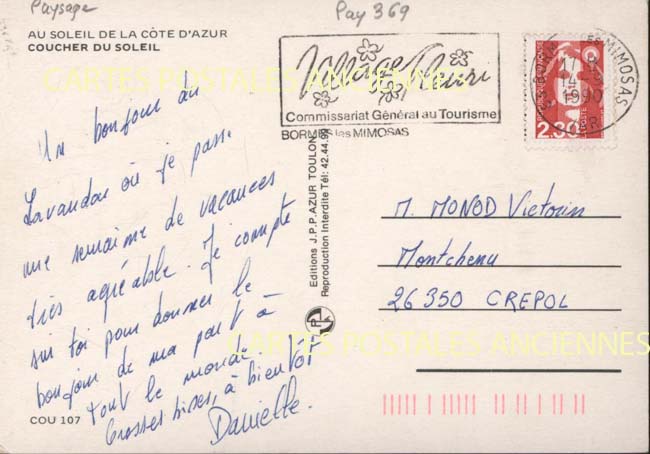 Paysage
Pay 369
AU SOLEIL DE LA CÔTE D'AZUR
COUCHER DU SOLEIL
Village Fleuri
Commissariat Général au Tourisme
BORMES les MIMOSAS
MIMOSAS
17 H
14
1990
VAR
REPUBLIQUE FRANÇAISE
LA POSTE
2.30
CARTES POSTALES ANCIENNES
Un bonjour du
Lavandou où je passe
une semaine de vacances
très agréable. Je compte
sur toi pour donner le
bonjour de ma part à
tout le monde.
Grosses bises, à bientôt
Danielle.
Editions J.P.P.AZUR TOULON
Reproduction Interdite Tél: 42.44.
M. MONOD Victorin
Montchenu
26350 CREPOL
CARTES POSTALES ANCIENNES
COU 107